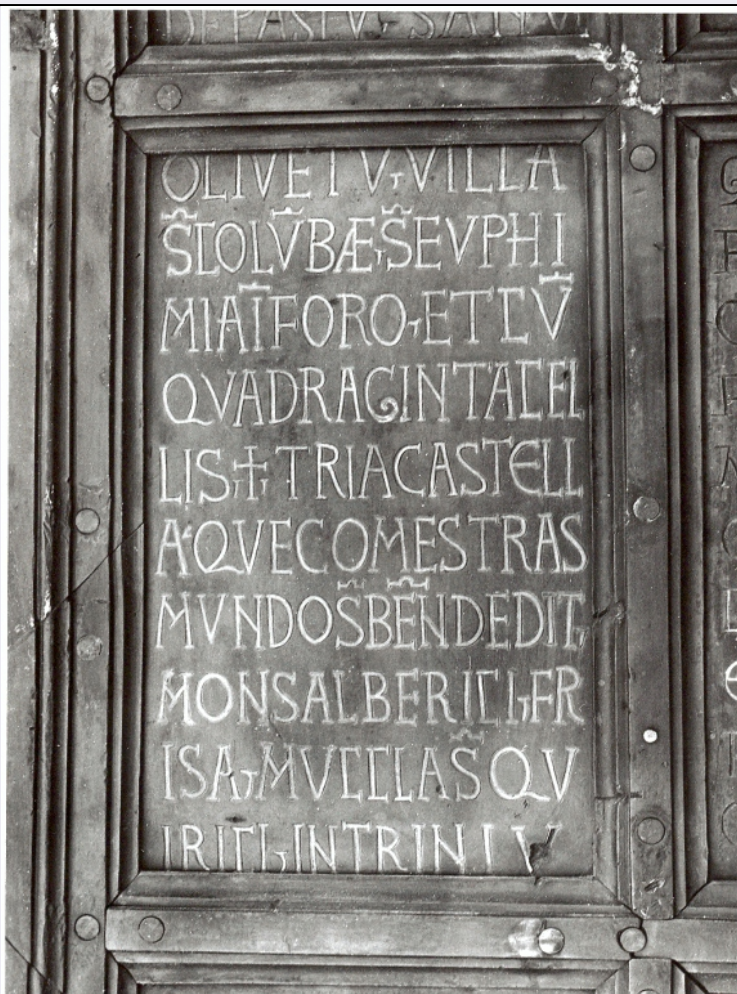 DEPASTU SANVI
OLIVETV VILLA
S̄COLV̄BÆ S̄EVPHI
MIAĪFORO ET CV̄
QVADRAGINTACEL
LIS † TRIACASTELL
AQVECOMESTRAS
MVNDOS̄BEN̄DEDIT
MONSALBERICI FR
ISA MVCCLAS̄QV
IRICI INTRINIV